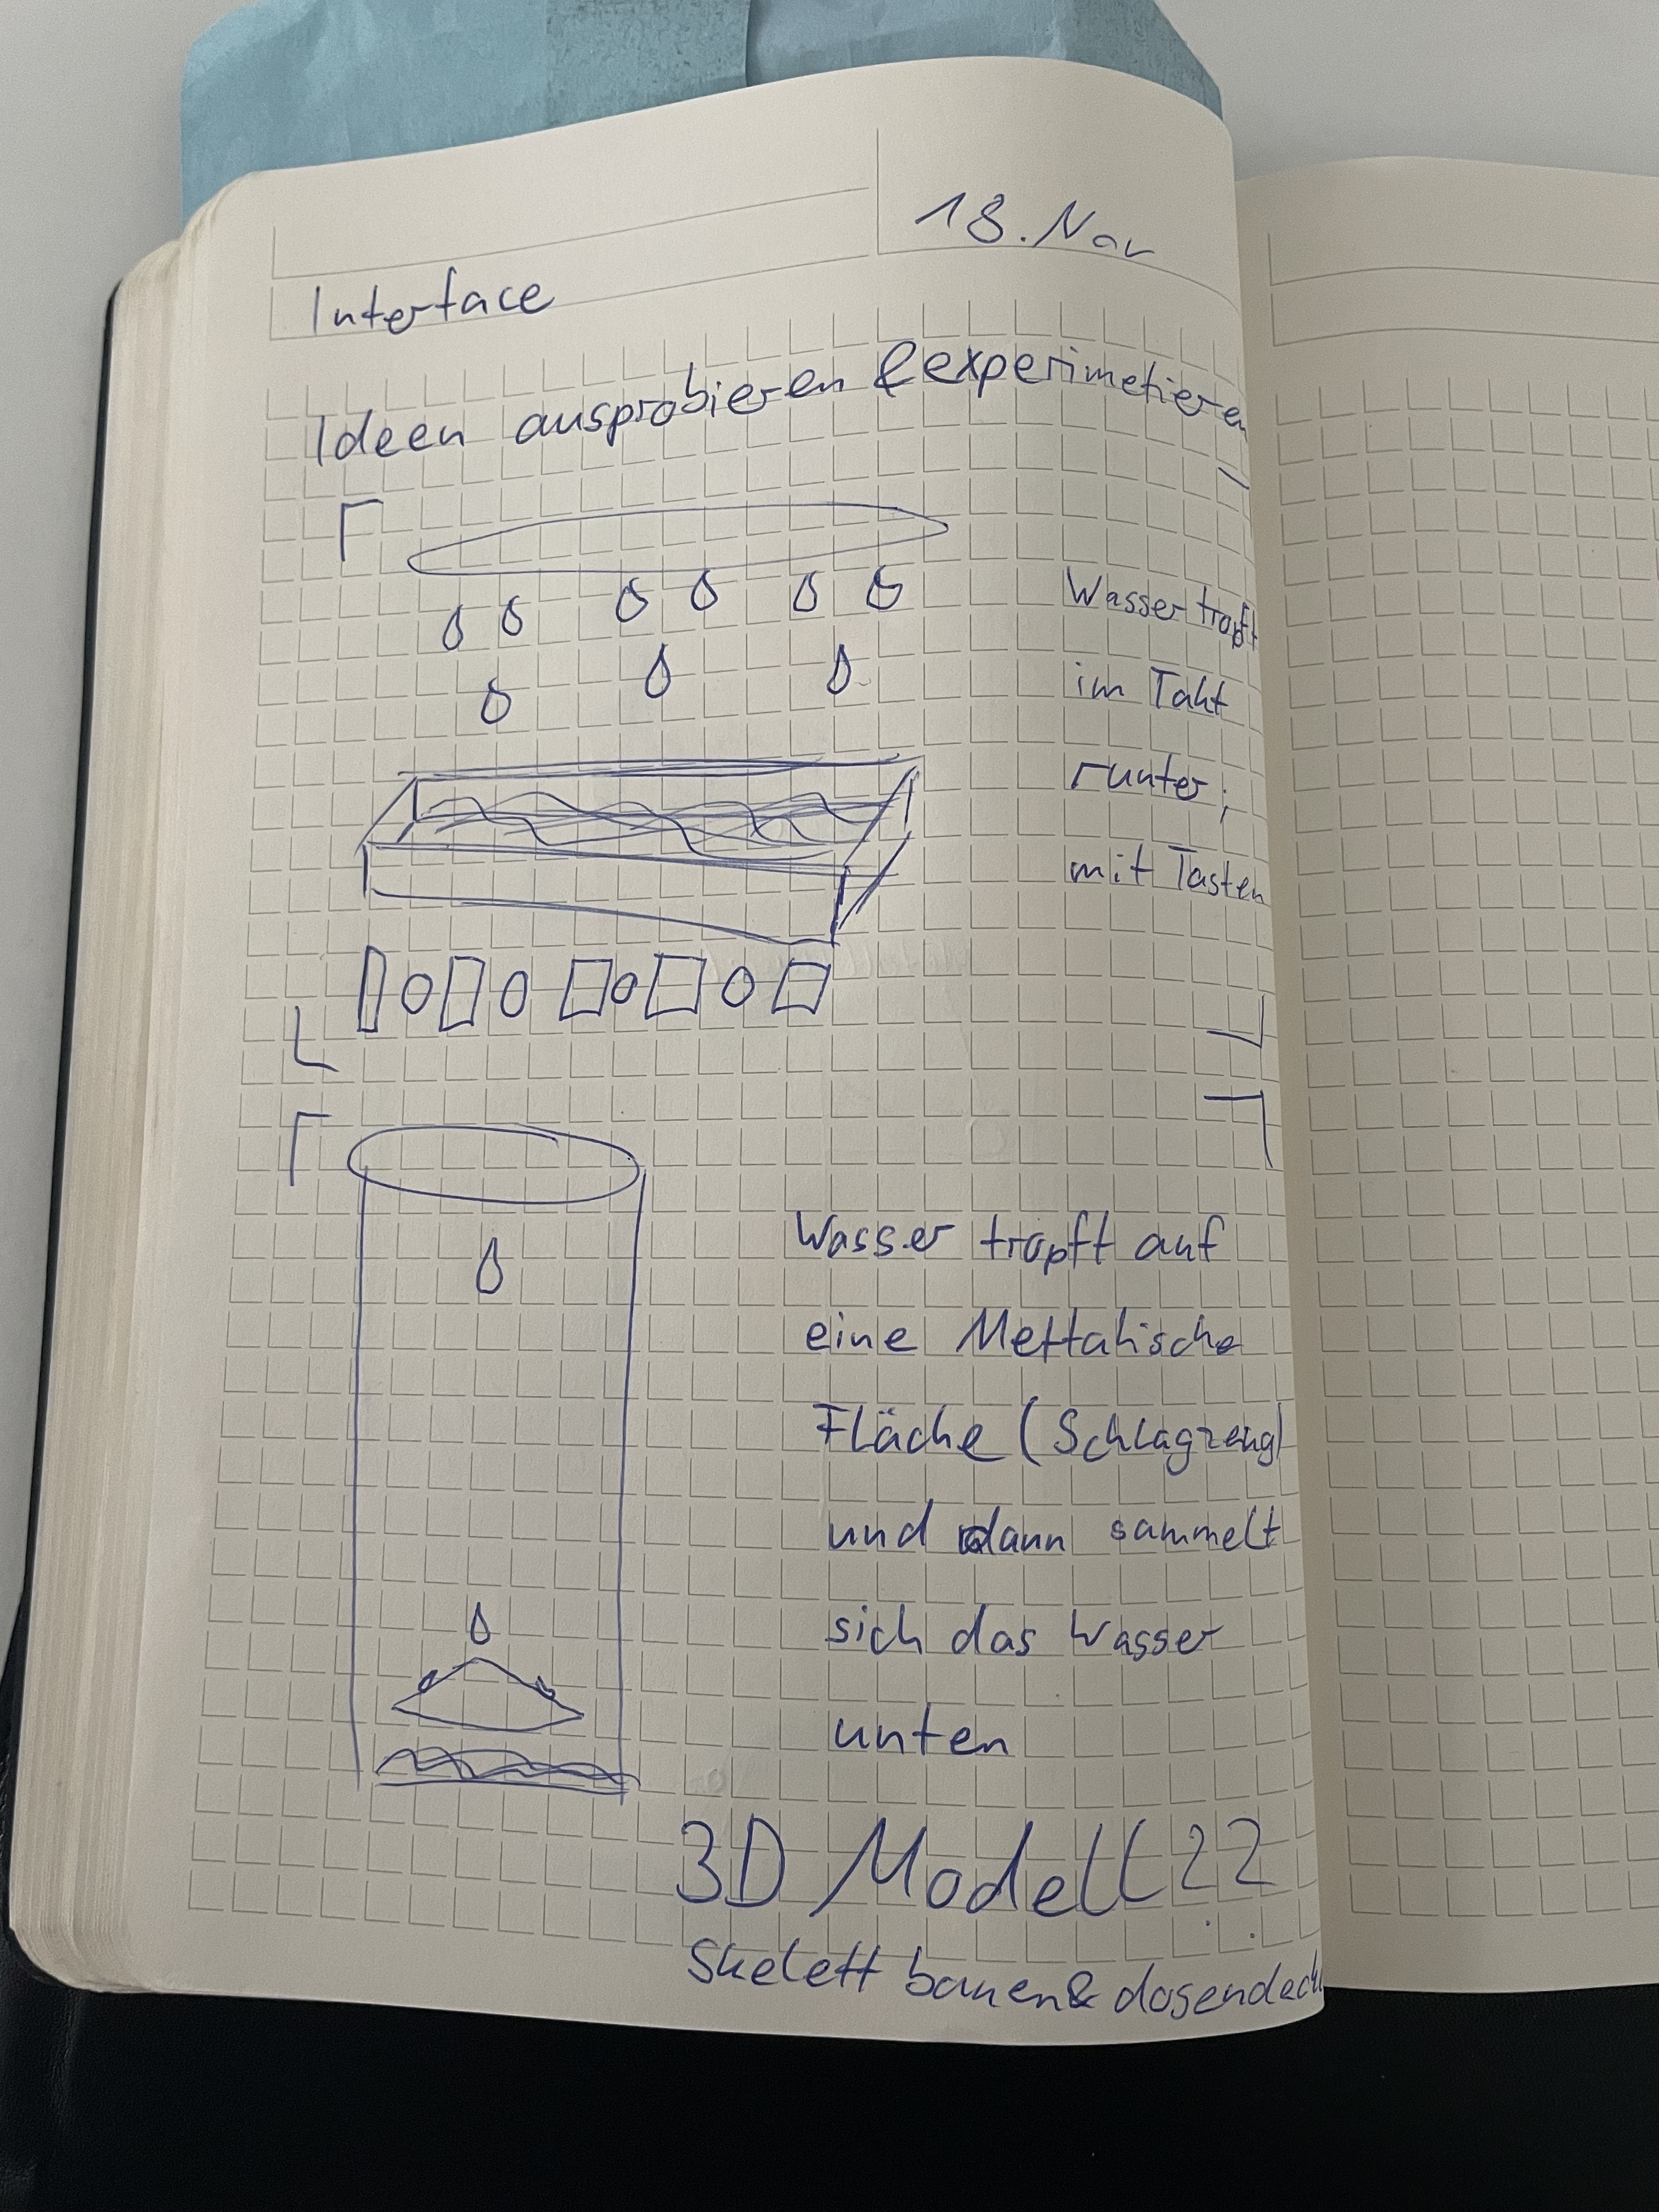 18. Nov
Interface
Ideen ausprobieren & experimetieren
Wasser tropft
im Takt
runter;
mit Tasten
Wasser tropft auf
eine Mettalische
Fläche (Schlagzeug)
und dann sammelt
sich das Wasser
unten
3D Modell??
Skelett bauen &